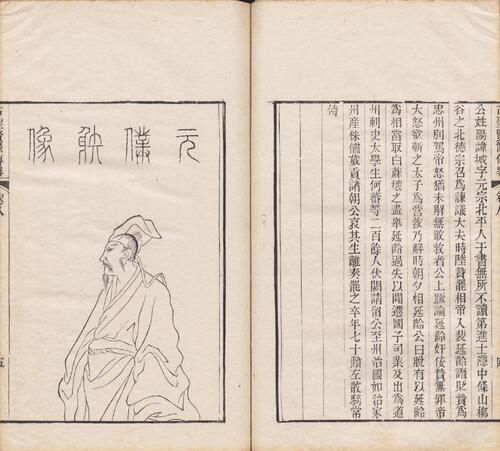 公姓陽諱城字元宗北平人于書無所不讀第進士隱中條山柳
谷之北德宗召爲諫議大夫時陸贄罷相帝入裴延齡譖貶贄爲
忠州別駕帝怒猶未解無敢救者公上疏論延齡奸佞贄無罪帝
大怒欲斬之太子爲營救乃解時朝夕相延齡公曰脫有以延齡
爲相當取白蔴壞之盡舉延齡過失以聞遷國子司業及出爲道
州刺史太學生何蕃等二百餘人伏闕請留公至州治國如治家
州産侏儒歲貢諸朝公哀其生離奏罷之卒年七十贈左散騎常
侍
元僕射像
五